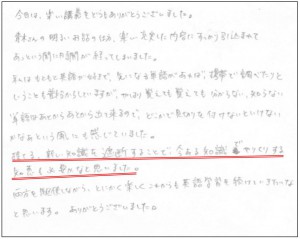 今日は、楽しい講義をどうもありがとうございました。
青木さんの明るいお話のせいか、楽しく充実した内容にすっかり引き込まれて
あっという間に時間が経ってしまいました。
私はもともと英語が好きで、気になる単語があれば、携帯で調べたりと
いうことも普段からしていますが、やはり覚えても覚えても分からない、知らない
単語はあとからあとから出て来るので、どこかで見切りを付けないといけない
かなあという風にも感じていました。
捨てる、新しい知識を遮断することで、今ある知識でやりくりする
知恵も必要かなと思いました。
両方を駆使しながら、とにかく楽しくこれからも英語学習を続けていきたいな
と思います。ありがとうございました。